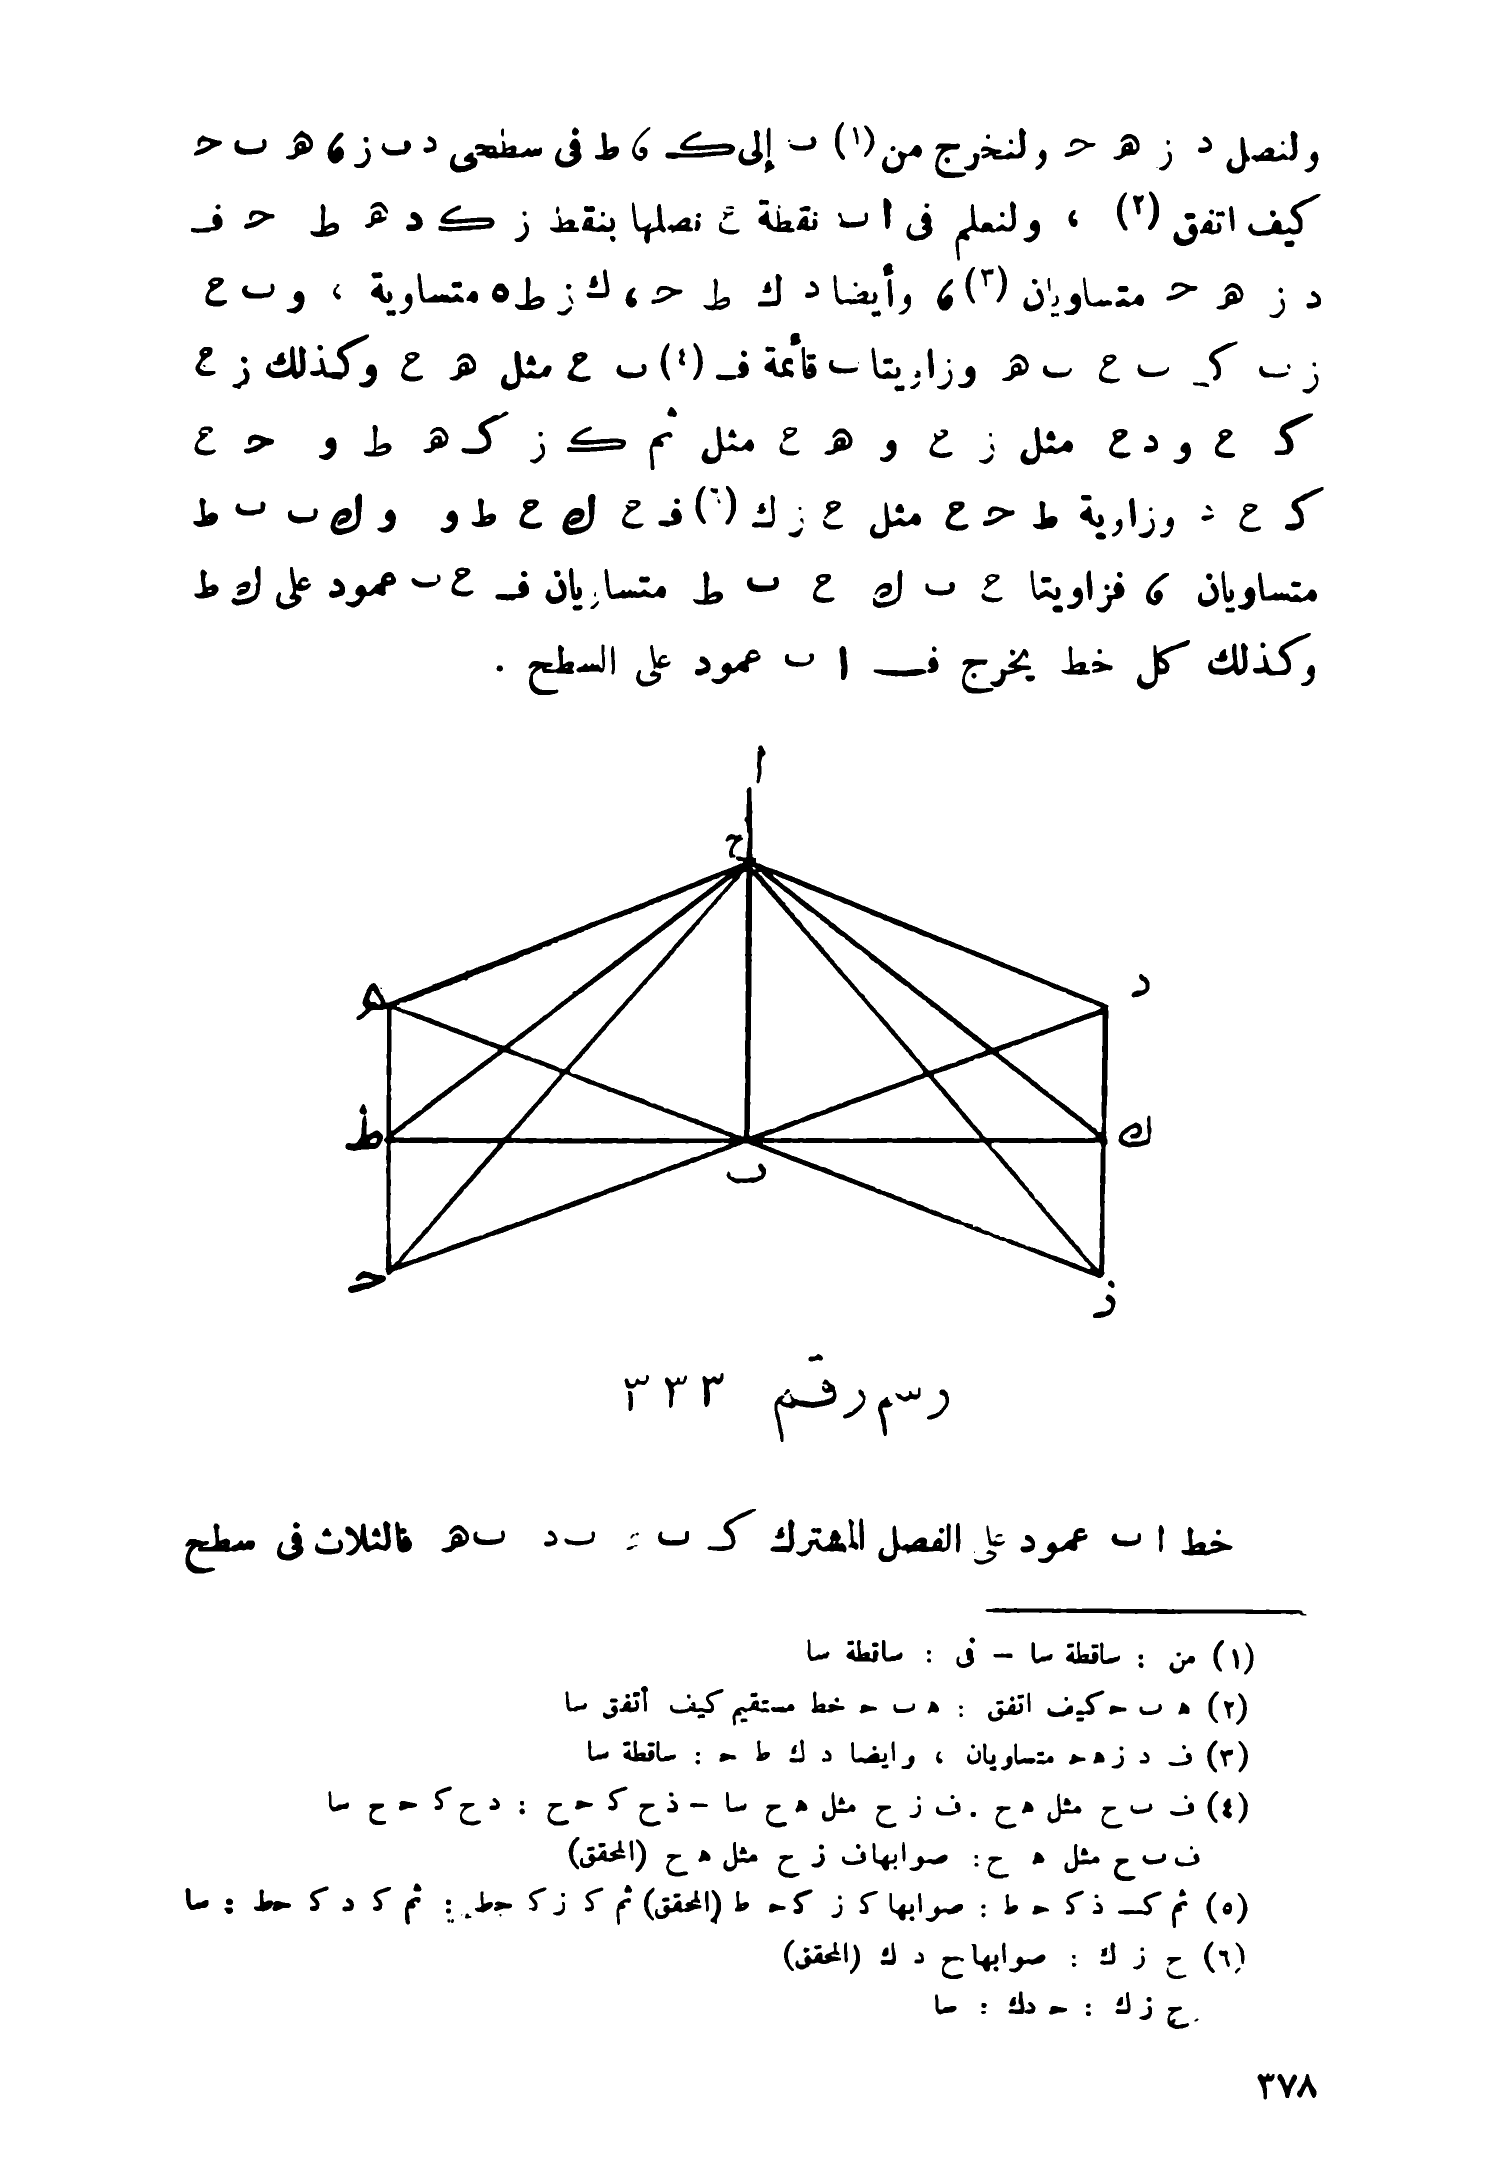 ولنصل د ز هـ حـ ولنخرج من (١) ب إلى كـ ، ط فى سطحى د ب ز ، هـ ب حـ
كيف اتفق (٢) ، ولنعلم فى ا ب نقطة ح نصلها بنقط ز كـ د هـ ط حـ فـ
د ز هـ حـ متساويان (٣) ، وأيضا د ك ط حـ ، ك ز ط ه متساوية ، و ب ح
ز ب كـ ب ح ب هـ وزاويتا ب قائمة فـ (٤) ب ح مثل هـ ح وكذلك ز ح
كـ ح و د ح مثل ز ح و هـ ح مثل ثم كـ ز كـ هـ ط و حـ ح
كـ ح وزاوية ط حـ ح مثل ح ز ك (٦) فـ ح ك ح ط و و ك ب ب ط
متساويان ، فزاويتا ح ب ك ح ب ط متساويان فـ ح ب عمود على ك ط
وكذلك كل خط يخرج فـ ا ب عمود على السطح .
ا
ح
هـ
د
ط
ك
ب
حـ
ز
رسم رقم ٣٣٣
خط ا ب عمود على الفصل المشترك كـ ب ب د ب هـ فالثلاث فى سطح
(١) من : ساقطة سا – فى : ساقطة سا
(٢) ه ب حـ كيف اتفق : ه ب حـ خط مستقيم كيف أتفق سا
(٣) فـ د ز هـ حـ متساويان ، وايضا د ك ط حـ : ساقطة سا
(٤) فـ ب ح مثل ه ح . فـ ز ح مثل ه ح سا – ذ ح كـ حـ ح : د ح كـ حـ ح سا
فـ ب ح مثل ه ح : صوابها فـ ز ح مثل ه ح (المحقق)
(٥) ثم كـ ذ كـ حـ ط : صوابها كـ ز كـ حـ ط (المحقق) ثم كـ ز كـ جط : ثم كـ د كـ حط : سا
(٦) ح ز ك : صوابها ح د ك (المحقق)
ح ز ك : حـ دك : سا
٣٧٨